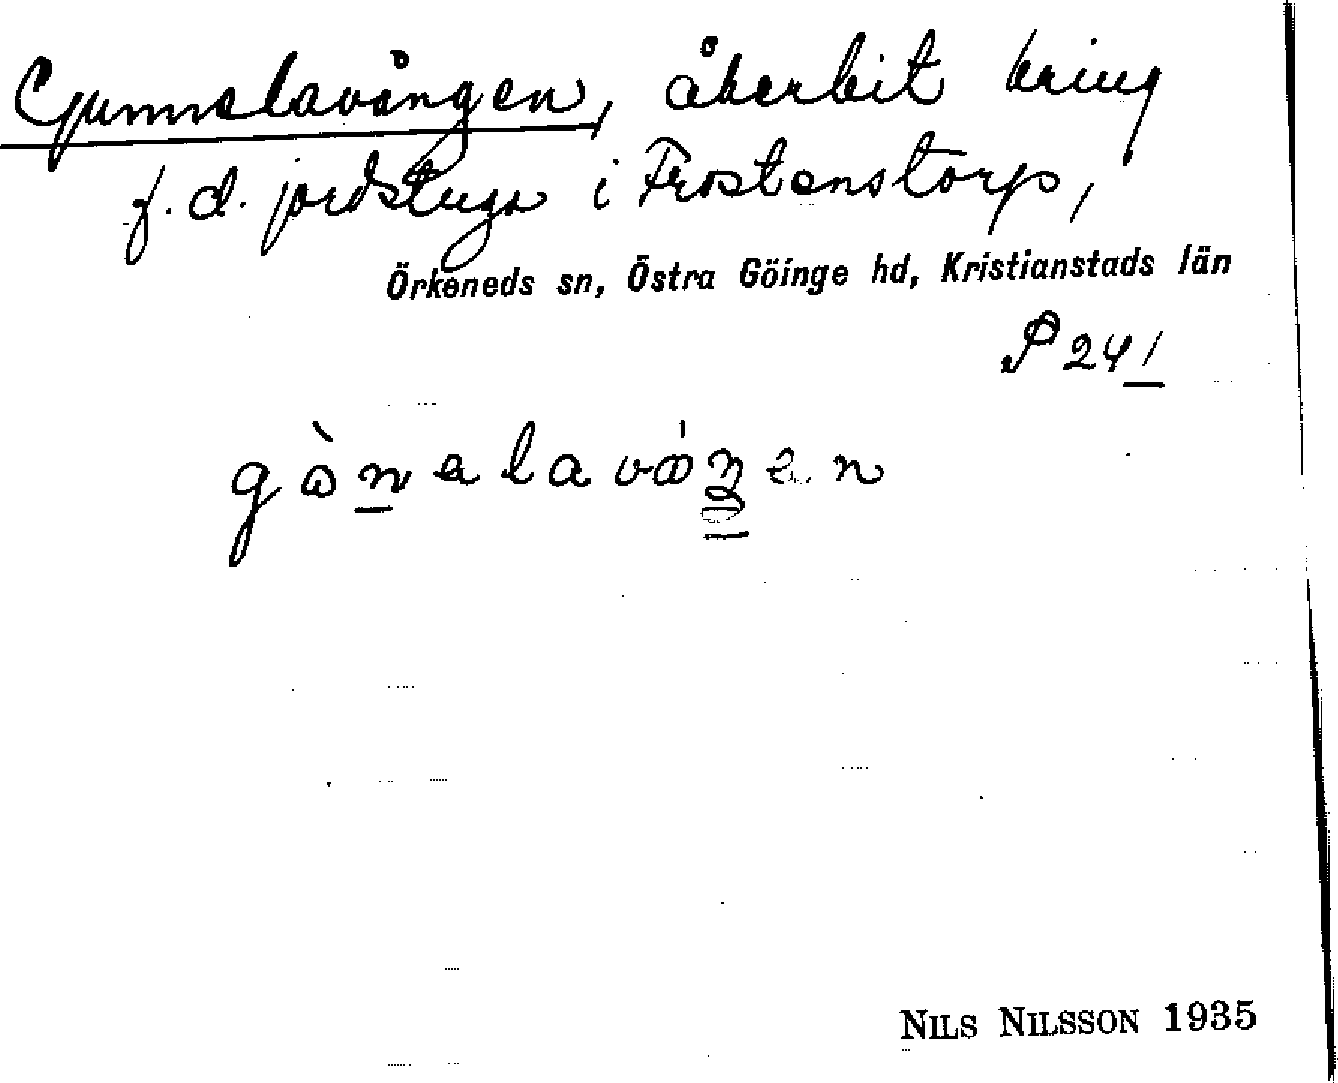 Gunnelavången, åkerbit kring
f. d. jordstuga i Frostenstorp,
Örkeneds sn, Östra Göinge hd, Kristianstads län
P 241
NILS NILSSON 1935